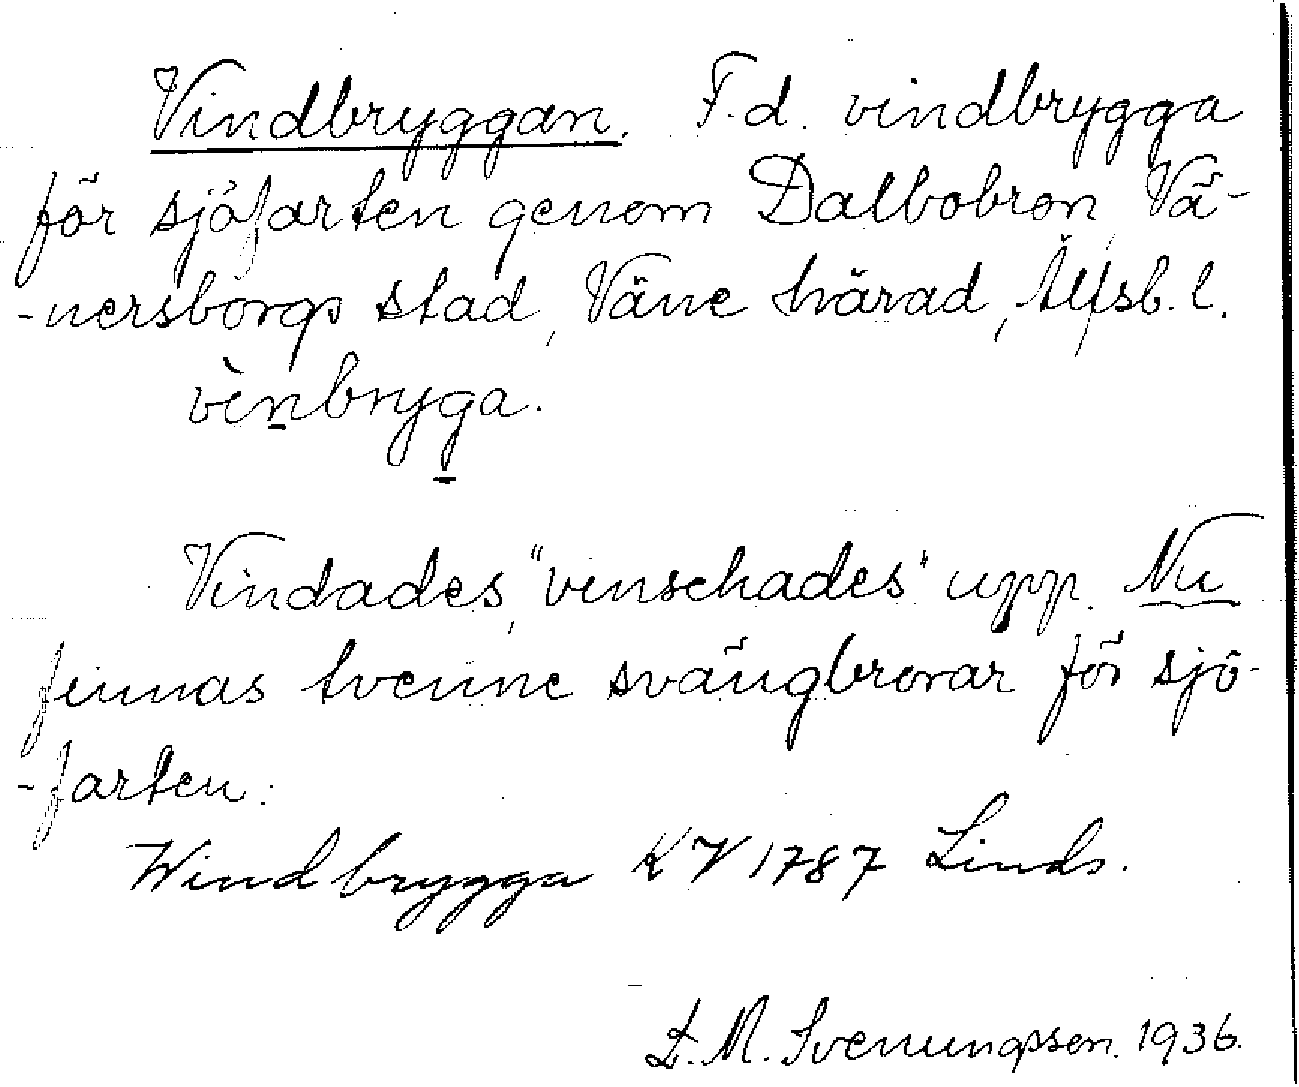 Vindbryggan. F.d. vindbrygga
för sjöfarten genom Dalbobron, Vä-
-nersborgs stad, Väne härad, Älfsb. l.
vènbryga.
Vindades, "venschades" upp. Nu
finnas tvenne svängbrovar för sjö-
-farten.
Windbrygga KV 1787 Linds.
L. M. Svenungsson. 1936.